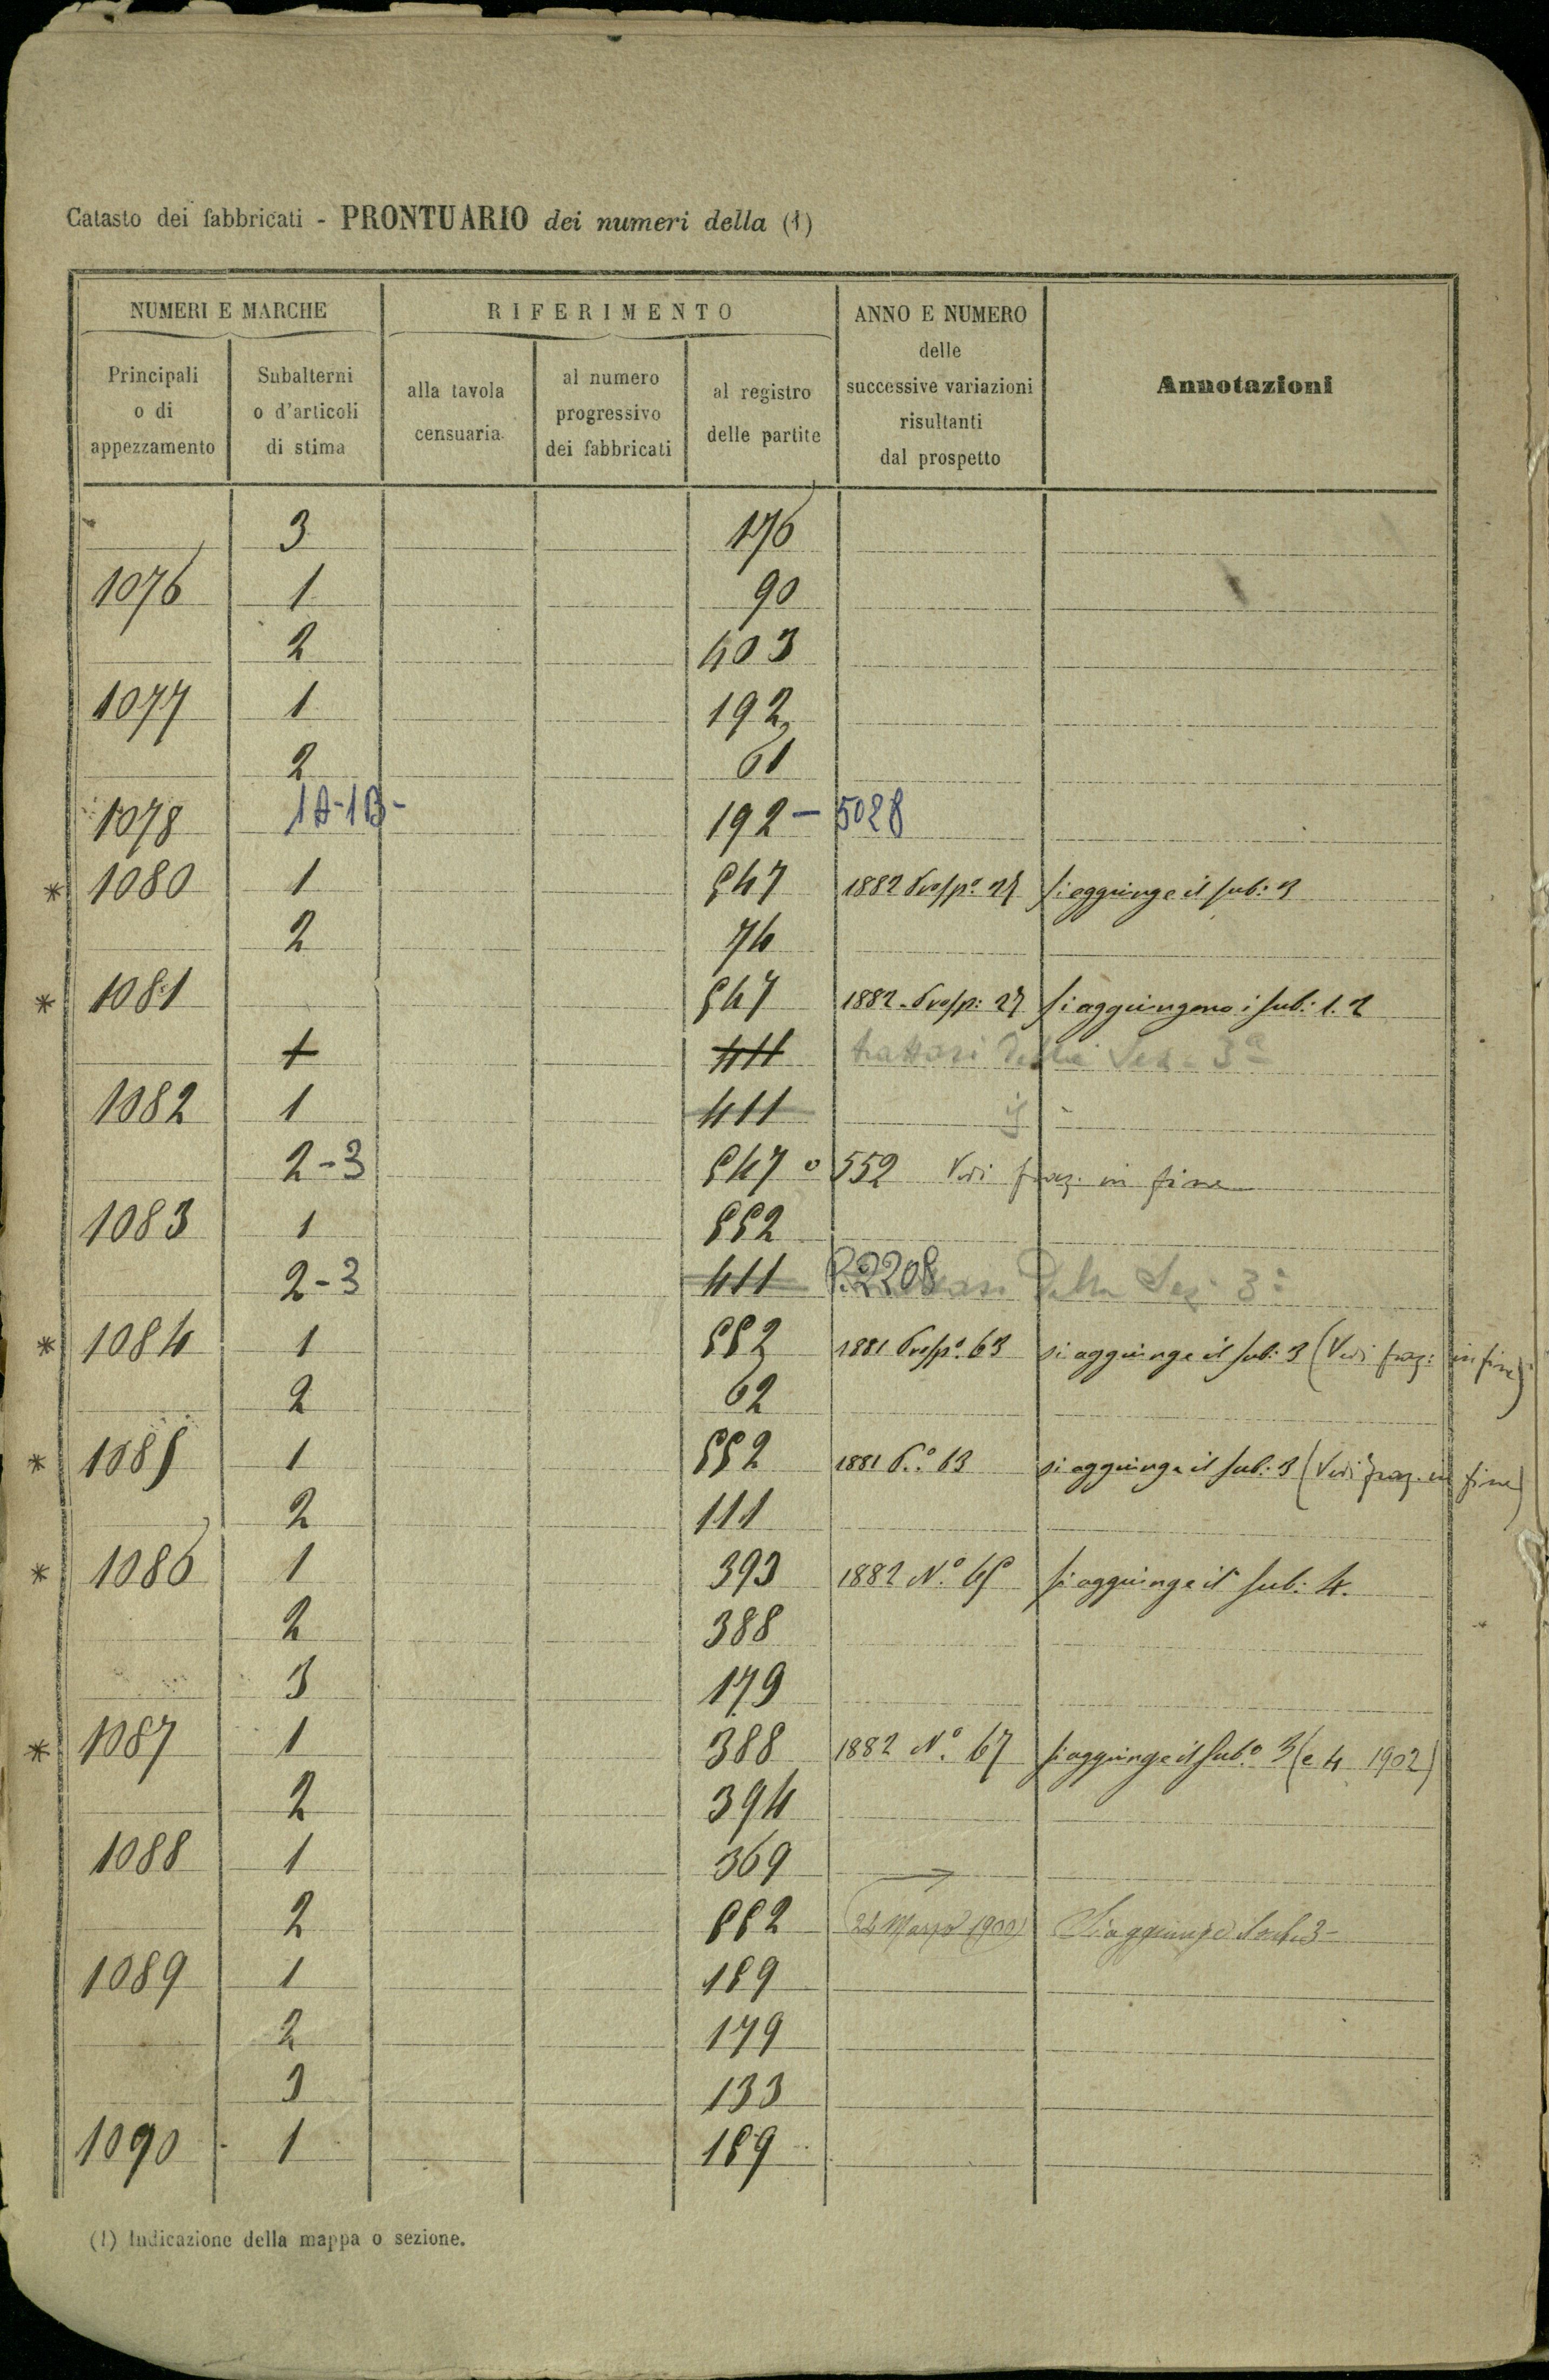 Catasto dei fabbricati - PRONTUARIO dei numeri della (1)
NUMERI E MARCHE RIFERIMENTO ANNO E NUMERO delle successive variazioni risultanti dal prospetto Annotazioni
Principali o di appezzamento Subalterni o d'articoli di stima alla tavola censuaria al numero progressivo dei fabbricati al registro delle partite
3 176
1076 1 90
2 403
1077 1 192
2 61
1078 1A-1B- 192 - 5028
* 1080 1 547 1882 Prosp.o 27 si aggiunge il sub: 3
2 74
* 1081 547 1882. Prosp: 27 si aggiungono i sub: 1. 2
1 411 trattasi della Sez. 3a
1082 1 411 id
2-3 547 o 552 Vedi fraz. in fine
1083 1 552
2-3 411 P. 2208 della Sez. 3a
* 1084 1 552 1881 Prosp.o 63 si aggiunge il sub: 3 (Vedi fraz: in fine)
2 62
* 1085 1 552 1881 P.o 63 si aggiunge il sub: 3 (Vedi fraz. in fine)
2 111
* 1086 1 393 1882 N.o 65 si aggiunge il sub: 4.
2 388
3 179
* 1087 1 388 1882 N.o 67 si aggiunge il sub.o 3 (e 4 1902)
2 394
1088 1 369
2 552 (24 Marzo 1900) Si aggiunge il sub. 3 -
1089 1 159
2 179
3 133
1090 1 159
(1) Indicazione della mappa o sezione.